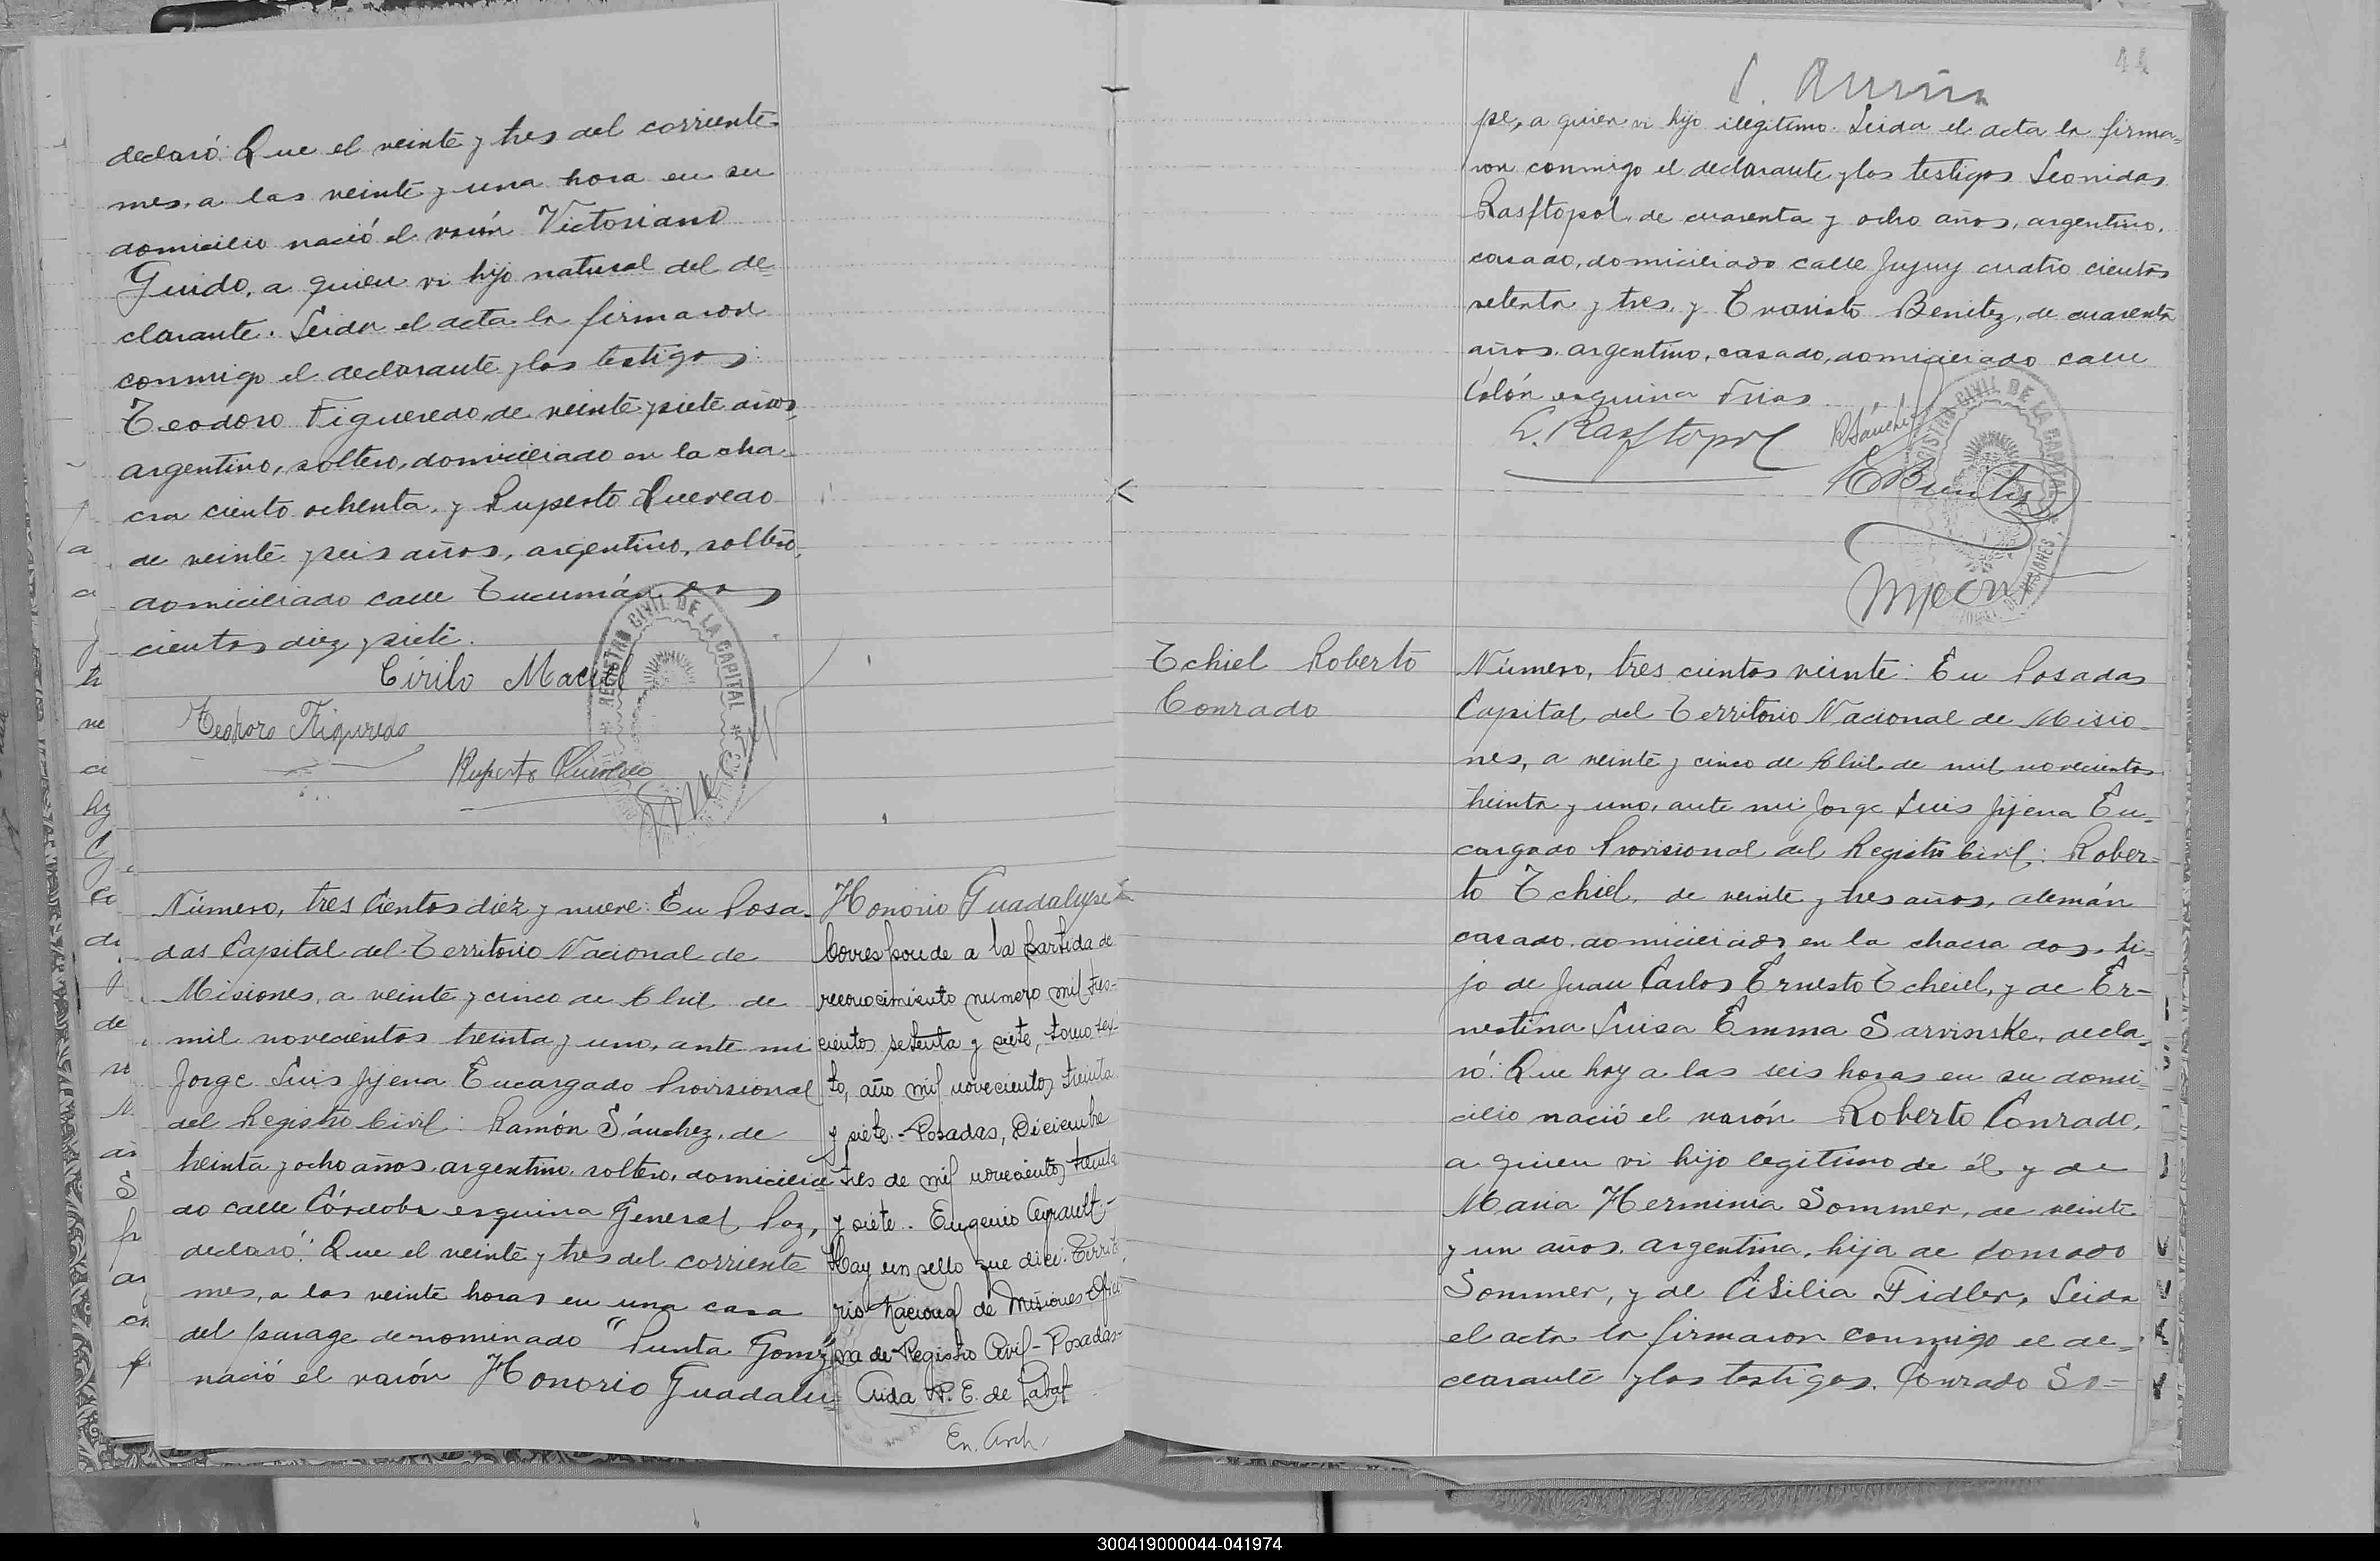 declaró: Que el veinte y tres del corriente
mes, a las veinte y una hora en su
domicilio nació el varón Victoriano
Guido, a quien vi hijo natural del de=
clarante. Leida el acta la firmaron
conmigo el declarante y los testigos:
Teodoro Figueredo, de veinte y siete años,
argentino, soltero, domiciliado en la cha-
cra ciento ochenta, y Ruperto Quevedo
de veinte y seis años, argentino, soltero,
domiciliado calle Tucumán dos
cientos diez y siete.
Cirilo Maciel
Teodoro Figueredo
Ruperto Quevedo
REGISTRO CIVIL DE LA CAPITAL
Número, tres cientos diez y nueve: En Posa-
das Capital del Territorio Nacional de
Misiones, a veinte y cinco de Abril de
mil novecientos treinta y uno, ante mi
Jorge Luis Jijena Encargado Provisional
del Registro Civil: Ramón Sánchez, de
treinta y ocho años, argentino, soltero, domicilia
do calle Córdoba esquina General Paz,
declaró: Que el veinte y tres del corriente
mes, a las veinte horas en una casa
del parage denominado "Punta Gomez"
nació el varón Honorio Guadalu=
Honorio Guadalupe
Corresponde a la partida de
reconocimiento numero mil tres-
cientos setenta y siete, tomo sex-
to, año mil novecientos treinta
y siete.- Posadas, Diciembre
tres de mil novecientos treinta
y siete.- Eugenio
Hay un sello que dice: Territo
rio Nacional de Misiones Ofici
na de Registro Civil - Posadas-
Aida P. E. de Labat
En. Arch.
44
pe, a quien vi hijo ilegitimo. Leida el acta la firma=
ron conmigo el declarante y los testigos Leonidas
Rasftopol, de cuarenta y ocho años, argentino,
casado, domiciliado calle Jujuy cuatro cientos
setenta y tres, y Evaristo Benitez, de cuarenta
años, argentino, casado, domiciliado calle
Colón esquina Frias
L. Rasftopol
RSánchez
EBenitez
REGISTRO CIVIL DE LA CAPITAL
MISIONES
Tchiel Roberto
Conrado
Número, tres cientos veinte: En Posadas
Capital del Territorio Nacional de Misio-
nes, a veinte y cinco de Abril de mil novecientos
treinta y uno, ante mi Jorge Luis Jijena En-
cargado Provisional del Registro Civil: Rober=
to Tchiel, de veinte y tres años, alemán
casado, domiciliado en la chacra dos, hi-
jo de Juan Carlos Ernesto Tcheiel, y de Er-
nestina Luisa Emma Sarvinske, decla-
ró: Que hoy a las seis horas en su domi-
cilio nació el varón Roberto Conrado,
a quien vi hijo legitimo de él y de
Maria Herminia Sommer, de veinte
y un años, argentina, hija de Conrado
Sommer, y de Cisilia Fidler, Leida
el acta la firmaron conmigo el de-
clarante y los testigos. Conrado So=
300419000044-041974